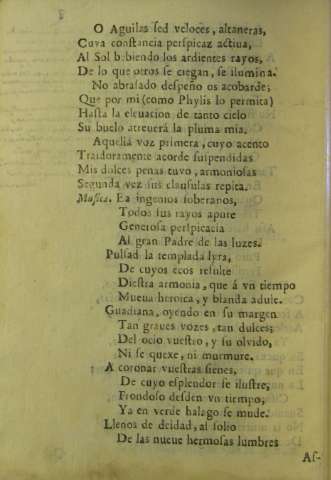 O Aguilas sed veloces, altaneras,
Cuya constancia perspicaz actiua,
Al Sol bebiendo los ardientes rayos,
De lo que otros se ciegan, se ilumina.
No abrasado despeño os acobarde;
Que por mi (como Phylis lo permita)
Hasta la eleuacion de tanto cielo
Su buelo atreuerà la pluma mia.
Aquella voz primera, cuyo acento
Traidoramente acorde suspendidas
Mis dulces penas tuvo, armoniosas
Segunda vez sus clausulas repita.
Musica. Ea ingenios soberanos,
Todos sus rayos apure
Generosa perspicacia
Al gran Padre de las luzes.
Pulsad la templada lyra,
De cuyos ecos resulte
Diestra armonia, que á vn tiempo
Mueua heroica, y blanda adule.
Guadiana, oyendo en su margen
Tan graues vozes, tan dulces;
Del ocio vuestro, y su olvido,
Ni se quexe, ni murmure.
A coronar vuestras sienes,
De cuyo esplendor se ilustre,
Frondoso desden vn tiempo,
Ya en verde halago se mude.
Llenos de deidad, al solio
De las nueue hermosas lumbres
As-